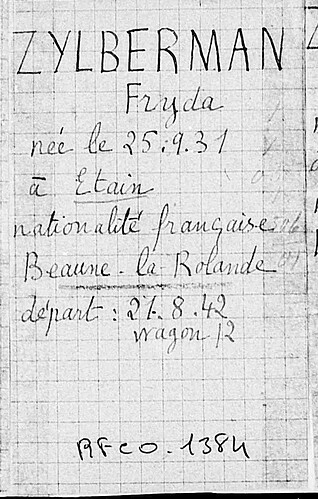 ZYLBERMAN
Fryda
née le 25.9.31
à Etain
nationalité française
Beaune-la-Rolande
départ : 21.8.42
wagon 12
RFCO.1384